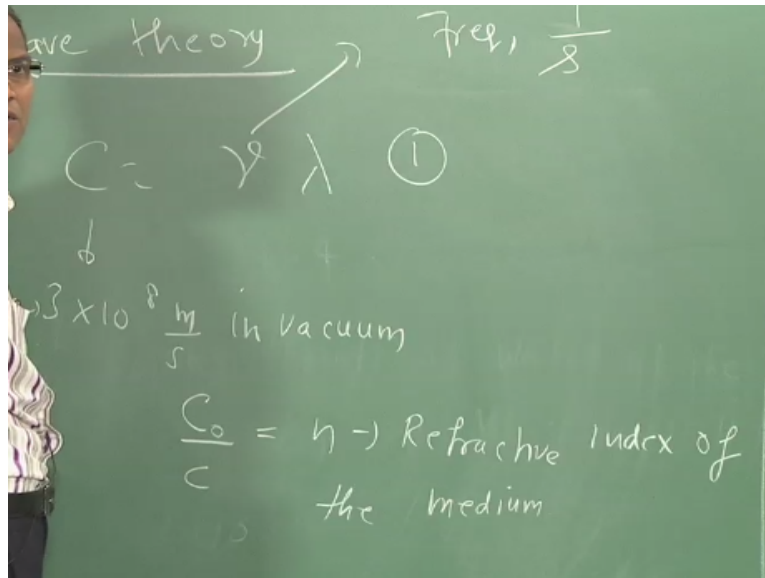 ave theory
Freq, 1/s
C = ν λ ①
3 × 10⁸ m/s in vacuum
C₀/C = η → Refractive index of
the medium